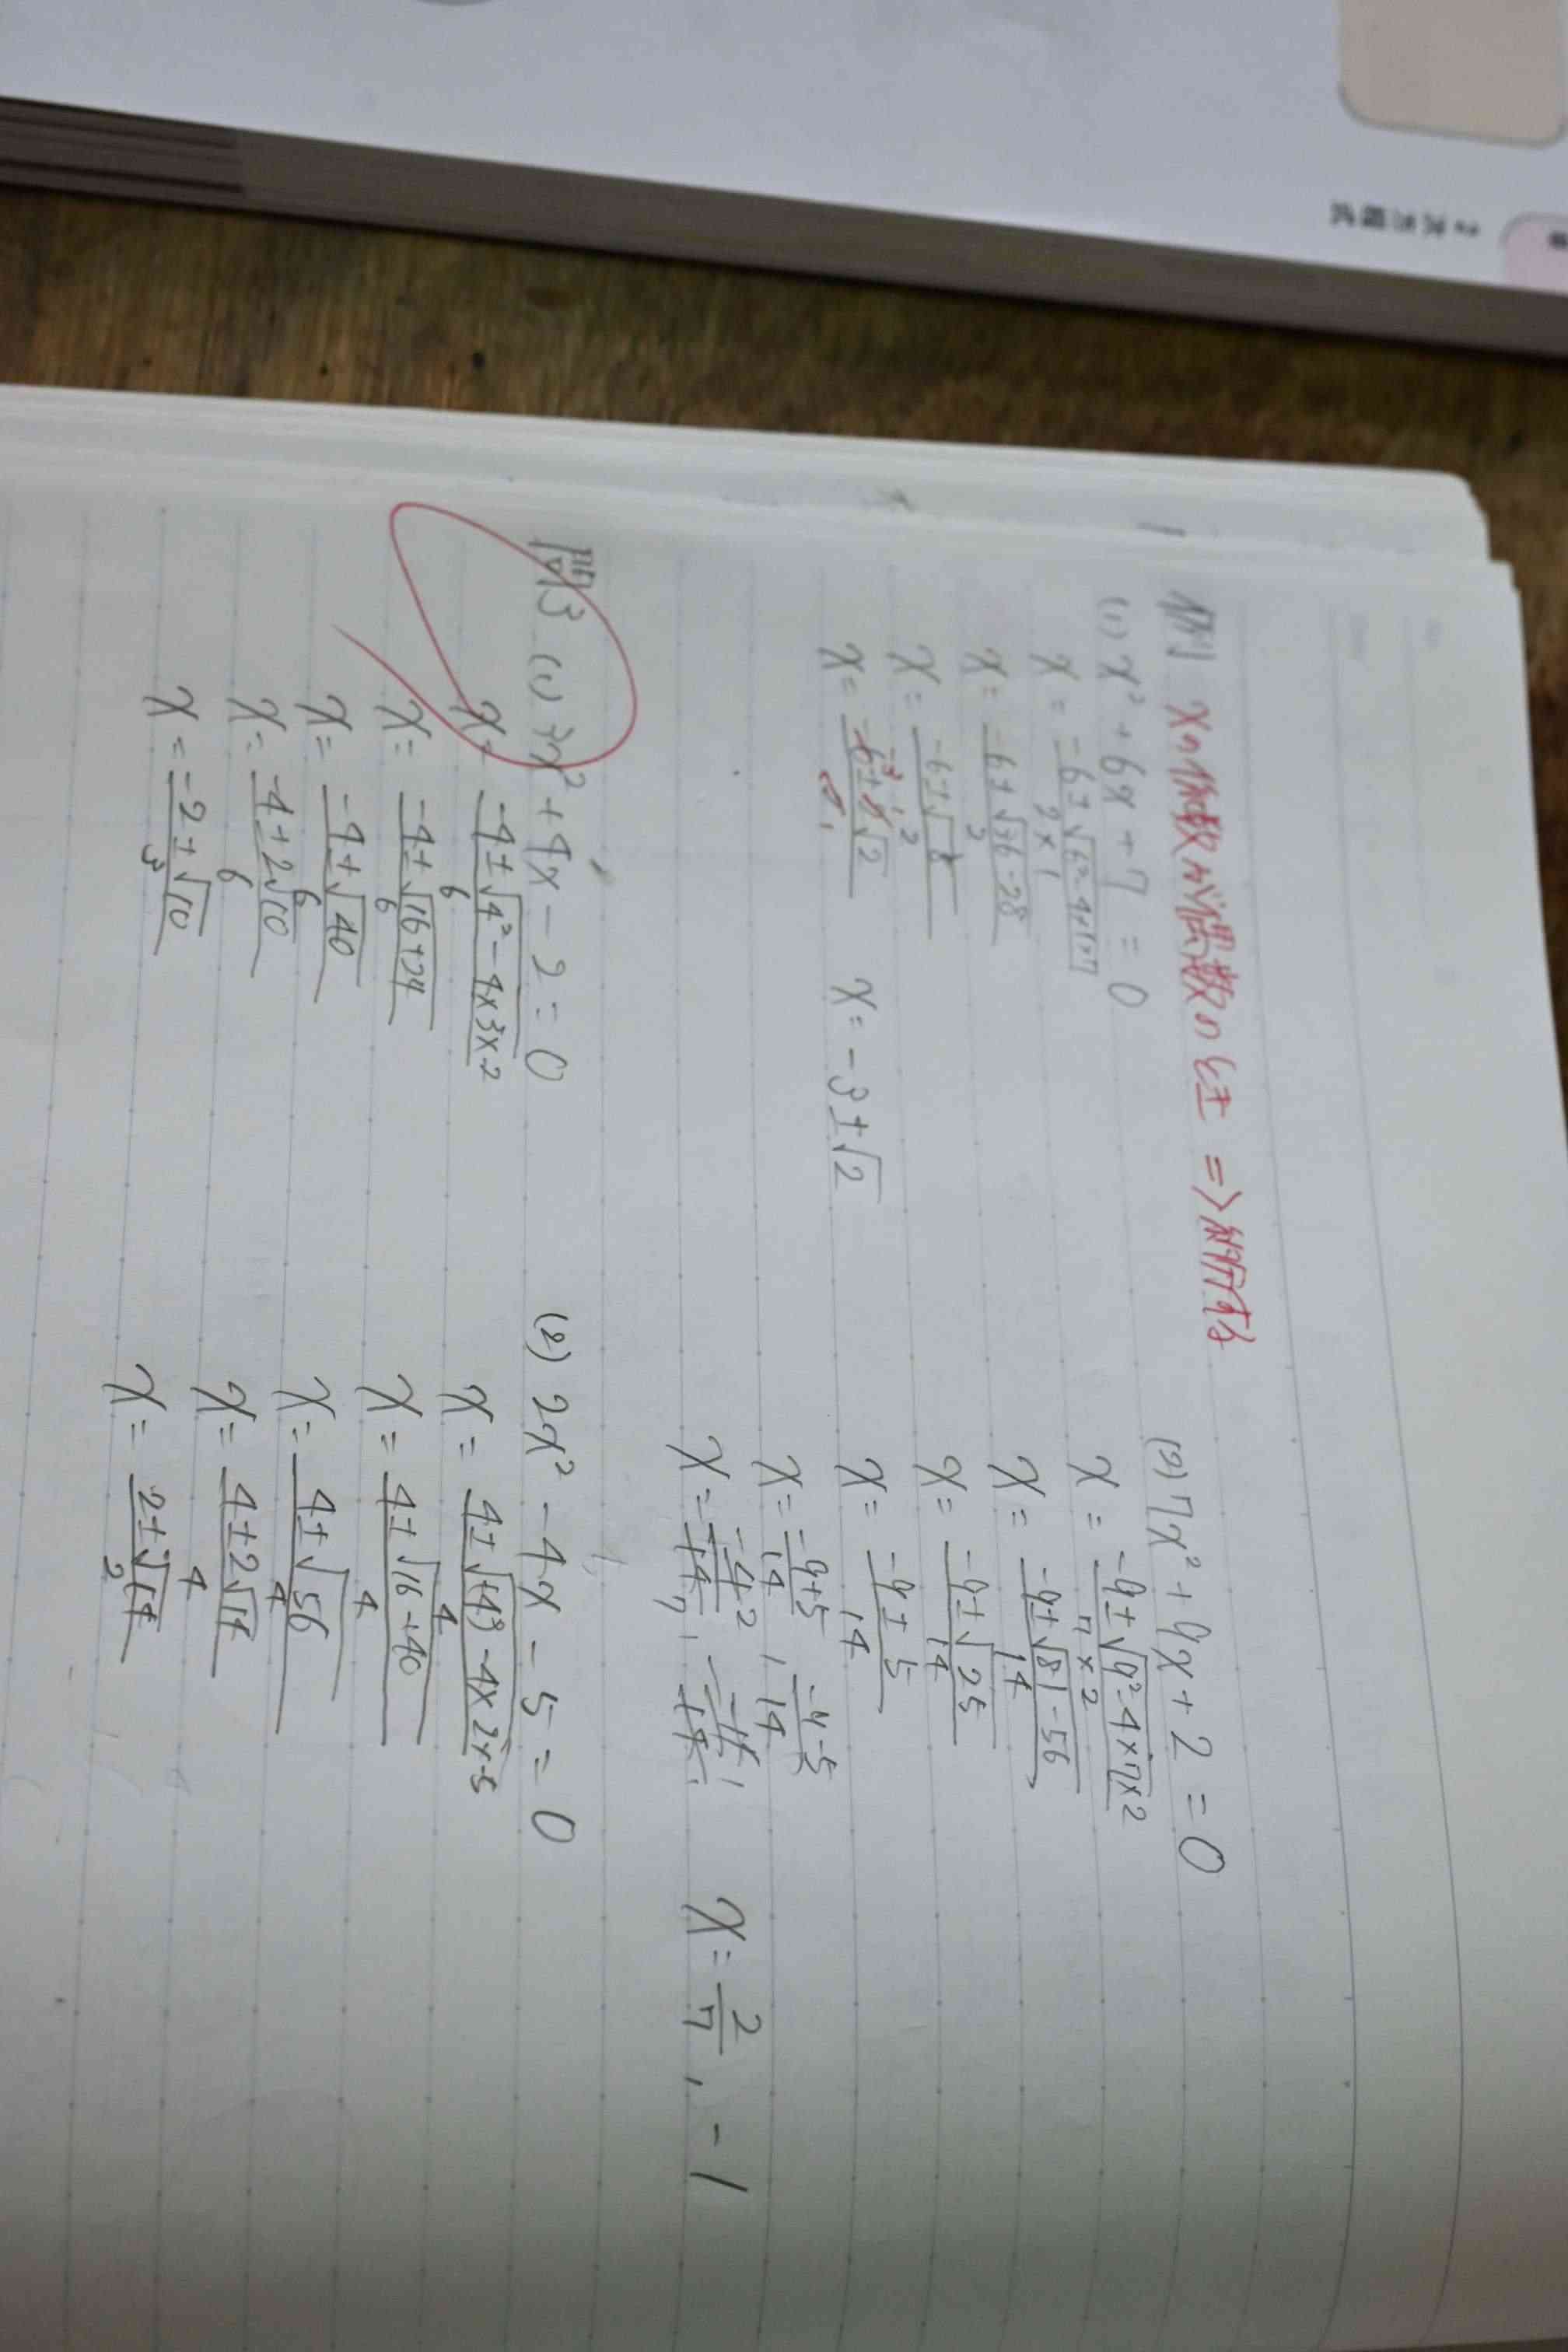 2次方程式
例 xの係数が偶数のとき⇒約分する
(1) x² + 6x + 7 = 0
x = -6±√6²-4×1×7 / 2×1
x = -6±√36-28 / 2
x = -6±√8 / 2
x = -6±2√2 / 2
x = -3±√2
(2) 7x² + 9x + 2 = 0
x = -9±√9²-4×7×2 / 7×2
x = -9±√81-56 / 14
x = -9±√25 / 14
x = -9±5 / 14
x = -9+5 / 14 , -9-5 / 14
x = -4 2 / 14 7 , -14 1 / 14 1
x = 2/7 , -1
問3 (1) 3x² + 4x - 2 = 0
x = -4±√4²-4×3×-2 / 6
x = -4±√16+24 / 6
x = -4±√40 / 6
x = -4±2√10 / 6
x = -2±√10 / 3
(2) 2x² - 4x - 5 = 0
x = 4±√(-4)²-4×2×-5 / 4
x = 4±√16+40 / 4
x = 4±√56 / 4
x = 4±2√14 / 4
x = 2±√14 / 2